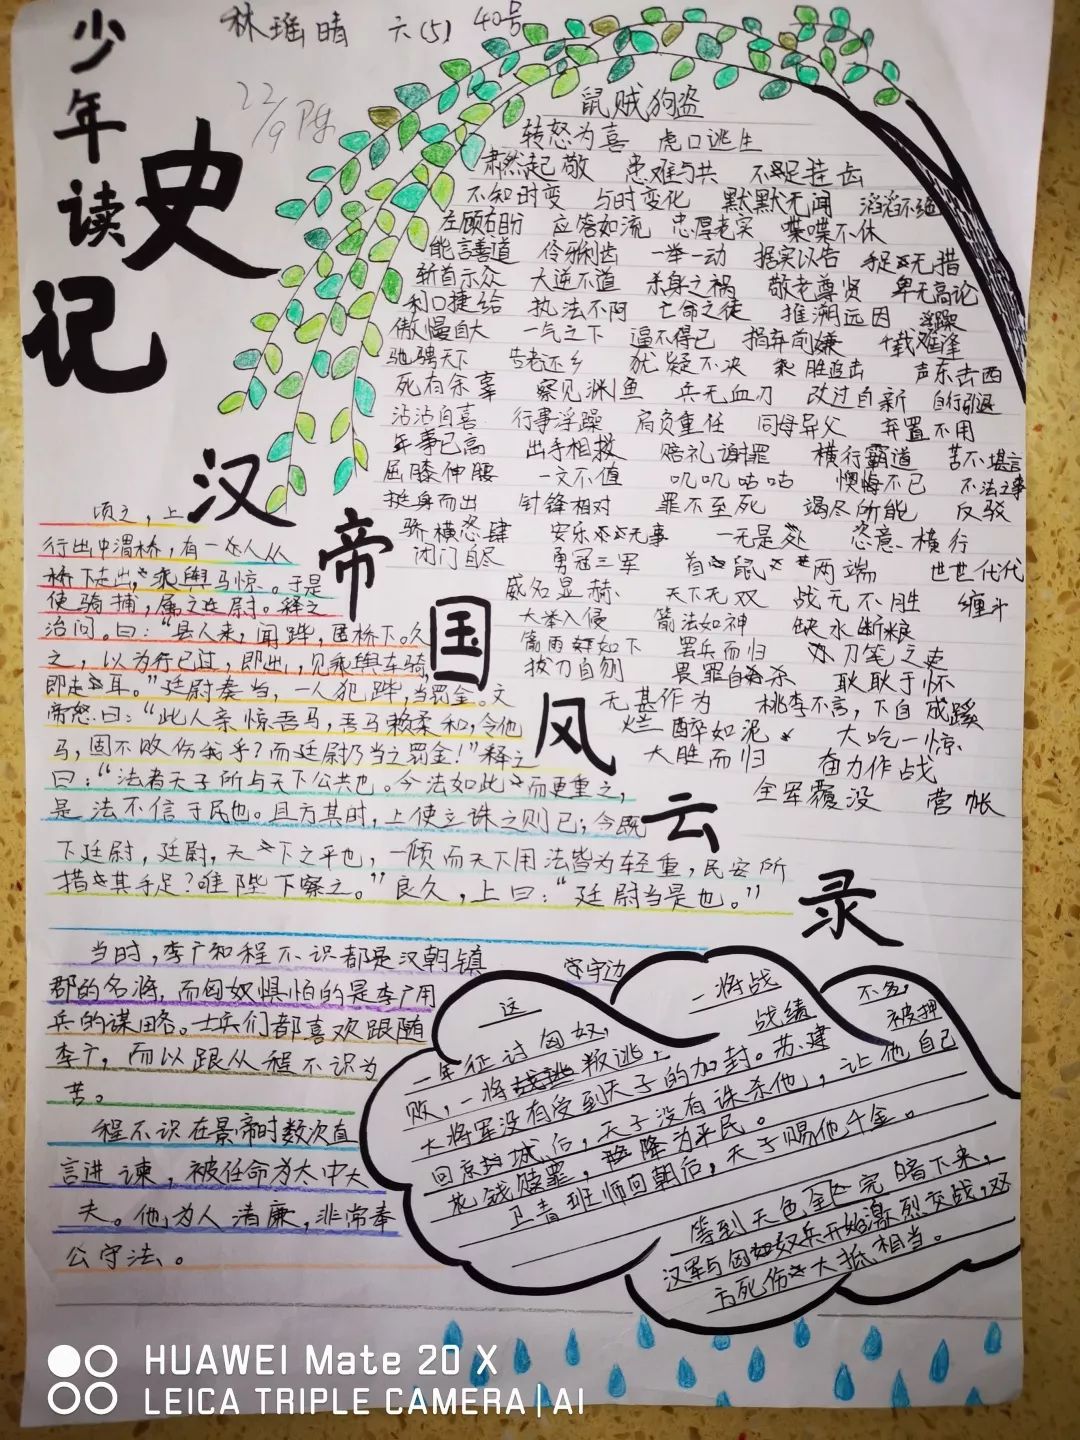 林瑶晴 六(5) 40号
少年读
史记
22/9
汉帝国风云录
鼠贼狗盗
转怒为喜 虎口逃生
肃然起敬 患难与共 不足挂齿
不知时变 与时变化 默默无闻 滔滔不绝
左顾右盼 应答如流 忠厚老实 喋喋不休
能言善道 伶牙俐齿 一举一动 据实以告 手足无措
斩首示众 大逆不道 杀身之祸 敬老尊贤 卑无高论
利口捷给 执法不阿 亡命之徒 推溯远因 浮躁
傲慢自大 一气之下 逼不得已 捐弃前嫌 千载难逢
驰骋天下 告老还乡 犹疑不决 乘胜追击 声东击西
死有余辜 察见渊鱼 兵无血刃 改过自新 自行引退
沾沾自喜 行事浮躁 肩负重任 同母异父 弃置不用
年事已高 出手相救 赔礼谢罪 横行霸道 苦不堪言
屈膝伸腰 一文不值 叽叽咕咕 懊悔不已 不法之事
挺身而出 针锋相对 罪不至死 竭尽所能 反驳
骄横恣肆 安乐无事 一无是处 恣意横行
闭门自尽 勇冠三军 首鼠两端 世世代代
威名显赫 天下无双 战无不胜 缠斗
大举入侵 箭法如神 缺水断粮
箭雨如下 罢兵而归 刀笔之吏
拔刀自刎 畏罪自杀 耿耿于怀
无甚作为 桃李不言,下自成蹊
烂醉如泥 大吃一惊
大胜而归 奋力作战
全军覆没 营帐
顷之,上
行出中渭桥,有一人从
桥下走出,乘舆马惊。于是
使骑捕,属之廷尉。释之
治问。曰:“县人来,闻跸,匿桥下。久
之,以为行已过,即出,见乘舆车骑,
即走耳。”廷尉奏当,一人犯跸,当罚金。文
帝怒曰:“此人亲惊吾马,吾马赖柔和,令他
马,固不败伤我乎?而廷尉乃当之罚金!”释之
曰:“法者天子所与天下公共也。今法如此而更重之,
是法不信于民也。且方其时,上使立诛之则已;今既
下廷尉,廷尉,天下之平也,一倾而天下用法皆为轻重,民安所
措其手足?唯陛下察之。”良久,上曰:“廷尉当是也。”
当时,李广和程不识都是汉朝镇守边
郡的名将,而匈奴惧怕的是李广用
兵的谋略。士兵们都喜欢跟随
李广,而以跟从程不识为
苦。
程不识在景帝时数次直
言进谏,被任命为太中大
夫。他为人清廉,非常奉
公守法。
这一年征讨匈奴,一将战
败,一将叛逃,战绩不多,
大将军没有受到天子的加封。苏建被押
回京城后,天子没有诛杀他,让他自己
花钱赎罪,降为平民。
卫青班师回朝后,天子赐他千金。
等到天色完暗下来,
汉军与匈奴兵开始激烈交战,双
方死伤大抵相当。
HUAWEI Mate 20 X
LEICA TRIPLE CAMERA|AI